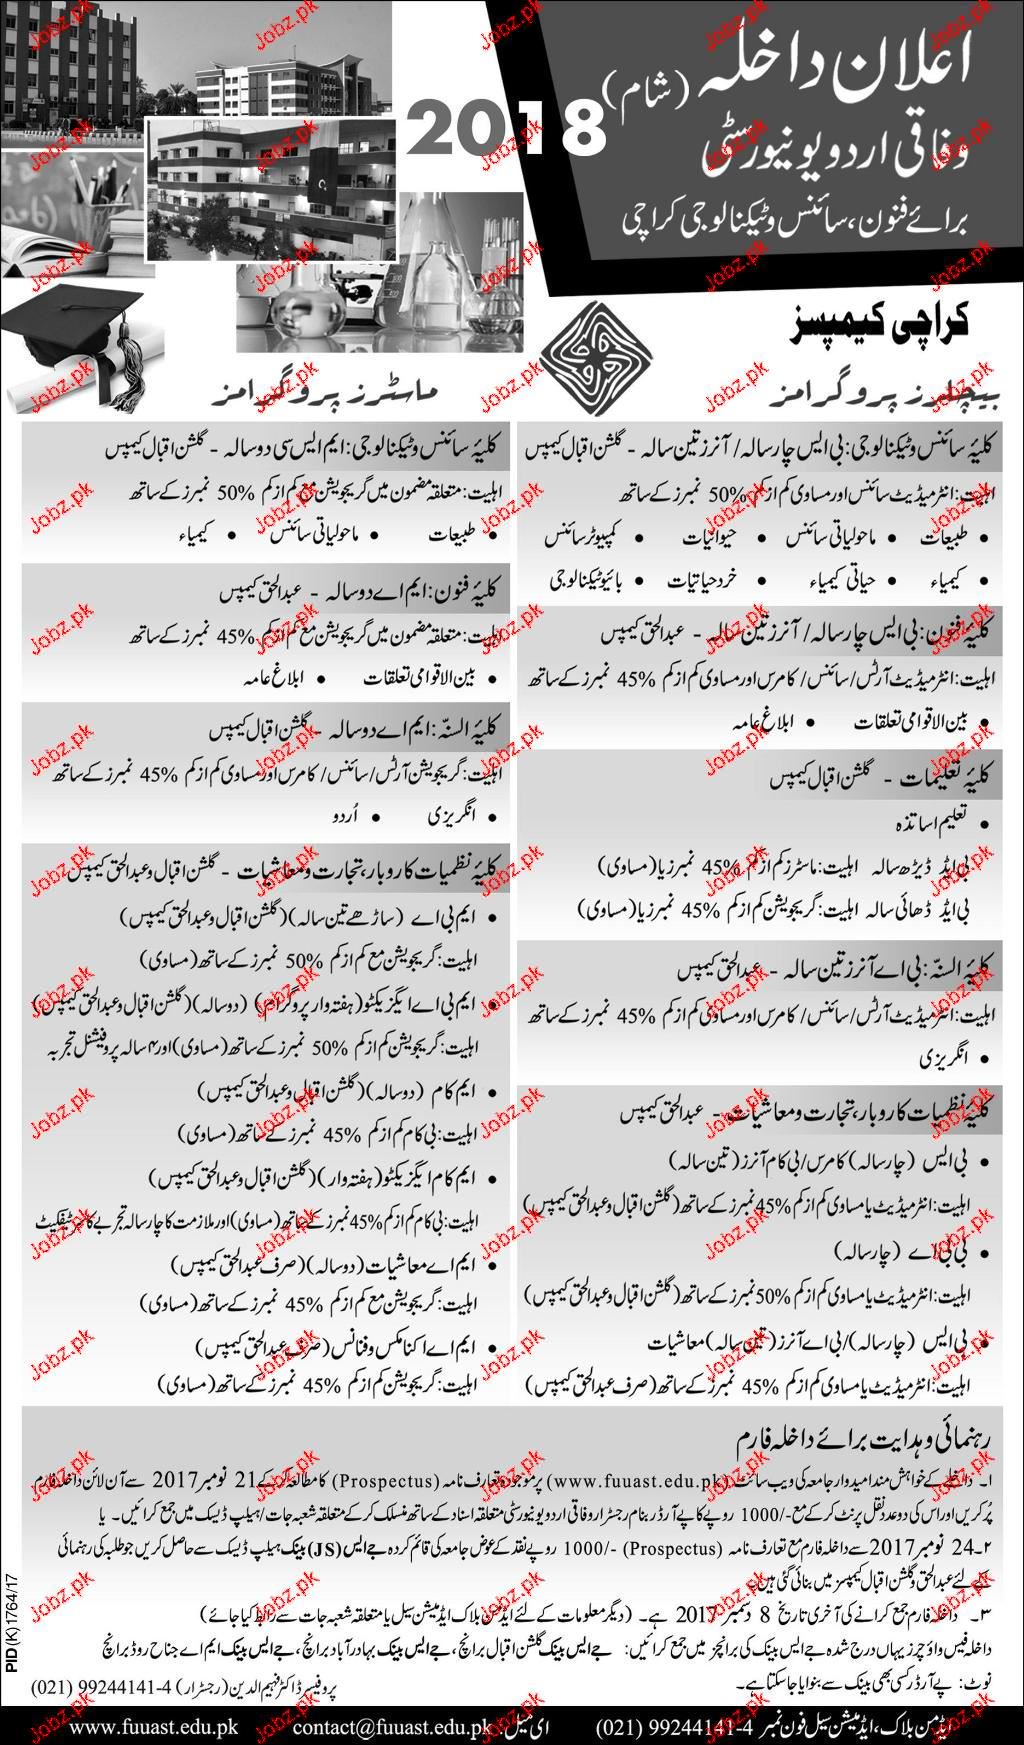 اعلان داخلہ (شام) 2018
وفاقی اردو یونیورسٹی
برائے فنون، سائنس و ٹیکنالوجی کراچی
کراچی کیمپسز
بیچلرز پروگرامز
کلیۂ سائنس و ٹیکنالوجی: بی ایس چار سالہ/ آنرز تین سالہ - گلشن اقبال کیمپس
اہلیت: انٹرمیڈیٹ سائنس اور مساوی کم از کم %50 نمبرز کے ساتھ
• طبیعات • ماحولیاتی سائنس • حیوانیات • کمپیوٹر سائنس
• کیمیاء • حیاتی کیمیاء • خرد حیاتیات • بائیو ٹیکنالوجی
کلیۂ فنون: بی ایس چار سالہ/ آنرز تین سالہ - عبدالحق کیمپس
اہلیت: انٹرمیڈیٹ آرٹس/ سائنس/ کامرس اور مساوی کم از کم %45 نمبرز کے ساتھ
• بین الاقوامی تعلقات • ابلاغ عامہ
کلیۂ تعلیمات - گلشن اقبال کیمپس
• تعلیم اساتذہ
بی ایڈ ڈیڑھ سالہ اہلیت: ماسٹرز کم از کم %45 نمبرز یا (مساوی)
بی ایڈ ڈھائی سالہ اہلیت: گریجویشن کم از کم %45 نمبرز یا (مساوی)
کلیۂ السنّہ: بی اے آنرز تین سالہ - عبدالحق کیمپس
اہلیت: انٹرمیڈیٹ آرٹس/ سائنس/ کامرس اور مساوی کم از کم %45 نمبرز کے ساتھ
• انگریزی
کلیۂ نظمیات کاروبار، تجارت و معاشیات - عبدالحق کیمپس
• بی ایس (چار سالہ) کامرس/ بی کام آنرز (تین سالہ)
اہلیت: انٹرمیڈیٹ یا مساوی کم از کم %45 نمبرز کے ساتھ (گلشن اقبال و عبدالحق کیمپس)
• بی بی اے (چار سالہ)
اہلیت: انٹرمیڈیٹ یا مساوی کم از کم %50 نمبرز کے ساتھ (گلشن اقبال و عبدالحق کیمپس)
• بی ایس (چار سالہ)/ بی اے آنرز (تین سالہ) معاشیات
اہلیت: انٹرمیڈیٹ یا مساوی کم از کم %45 نمبرز کے ساتھ (صرف عبدالحق کیمپس)
ماسٹرز پروگرامز
کلیۂ سائنس و ٹیکنالوجی: ایم ایس سی دو سالہ - گلشن اقبال کیمپس
اہلیت: متعلقہ مضمون میں گریجویشن مع کم از کم %50 نمبرز کے ساتھ
• طبیعات • ماحولیاتی سائنس • کیمیاء
کلیۂ فنون: ایم اے دو سالہ - عبدالحق کیمپس
اہلیت: متعلقہ مضمون میں گریجویشن مع کم از کم %45 نمبرز کے ساتھ
• بین الاقوامی تعلقات • ابلاغ عامہ
کلیۂ السنّہ: ایم اے دو سالہ - گلشن اقبال کیمپس
اہلیت: گریجویشن آرٹس/ سائنس/ کامرس اور مساوی کم از کم %45 نمبرز کے ساتھ
• انگریزی • اُردو
کلیۂ نظمیات کاروبار، تجارت و معاشیات - گلشن اقبال و عبدالحق کیمپس
• ایم بی اے (ساڑھے تین سالہ) (گلشن اقبال و عبدالحق کیمپس)
اہلیت: گریجویشن مع کم از کم %50 نمبرز کے ساتھ (مساوی)
• ایم بی اے ایگزیکٹو (ہفتہ وار پروگرام) (دو سالہ) (گلشن اقبال و عبدالحق کیمپس)
اہلیت: گریجویشن کم از کم %50 نمبرز کے ساتھ (مساوی) اور ۴ سالہ پروفیشنل تجربہ
• ایم کام (دو سالہ) (گلشن اقبال و عبدالحق کیمپس)
اہلیت: بی کام کم از کم %45 نمبرز کے ساتھ (مساوی)
• ایم کام ایگزیکٹو (ہفتہ وار) (گلشن اقبال و عبدالحق کیمپس)
اہلیت: بی کام کم از کم %45 نمبرز کے ساتھ (مساوی) اور ملازمت کا چار سالہ تجربے کا سرٹیفکیٹ
• ایم اے معاشیات (دو سالہ) (صرف عبدالحق کیمپس)
اہلیت: گریجویشن مع کم از کم %45 نمبرز کے ساتھ (مساوی)
• ایم اے اکنامکس و فنانس (صرف عبدالحق کیمپس)
اہلیت: گریجویشن کم از کم %45 نمبرز کے ساتھ (مساوی)
رہنمائی و ہدایت برائے داخلہ فارم
۱۔ داخلے کے خواہش مند امیدوار جامعہ کی ویب سائٹ (www.fuuast.edu.pk) پر موجود تعارف نامہ (Prospectus) کا مطالعہ کر کے 21 نومبر 2017 سے آن لائن داخلہ فارم
پُر کریں اور اس کی دو عدد نقل پرنٹ کر کے مع -/1000 روپے کا پے آرڈر بنام رجسٹرار وفاقی اردو یونیورسٹی متعلقہ اسناد کے ساتھ منسلک کر کے متعلقہ شعبہ جات/ ہیلپ ڈیسک میں جمع کرائیں۔ یا
۲۔ 24 نومبر 2017 سے داخلہ فارم مع تعارف نامہ (Prospectus) -/1000 روپے نقد کے عوض جامعہ کی قائم کردہ جے ایس (JS) بینک ہیلپ ڈیسک سے حاصل کریں جو طلبہ کی رہنمائی
کے لئے عبدالحق و گلشن اقبال کیمپسز میں بنائی گئی ہیں۔
۳۔ داخلہ فارم جمع کرانے کی آخری تاریخ 8 دسمبر 2017 ہے۔ (دیگر معلومات کے لئے ایڈمن بلاک ایڈمیشن سیل یا متعلقہ شعبہ جات سے رابطہ کیا جائے)
داخلہ فیس واؤچرز یہاں درج شدہ جے ایس بینک کی برانچز میں جمع کرائیں: جے ایس بینک گلشن اقبال برانچ، جے ایس بینک بہادر آباد برانچ، جے ایس بینک ایم اے جناح روڈ برانچ
نوٹ: پے آرڈر کسی بھی بینک سے بنوایا جا سکتا ہے۔
پروفیسر ڈاکٹر فہیم الدین (رجسٹرار) 4-99244141 (021)
PID(K)1764/17
ایڈمن بلاک، ایڈمیشن سیل فون نمبر 4-99244141 (021) ای میل: contact@fuuast.edu.pk www.fuuast.edu.pk
Jobz.pk